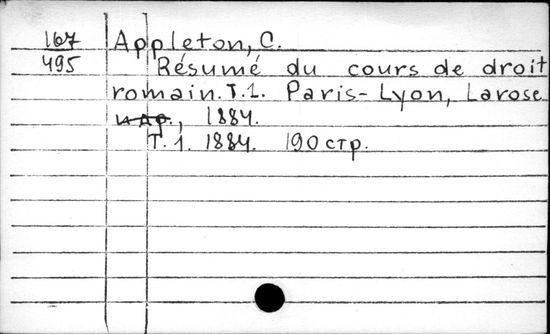 167 Appleton, C.
495 Résumé du cours de droit
romain. T. 1. Paris-Lyon, Larose
и др., 1884.
T. 1. 1884. 190 стр.